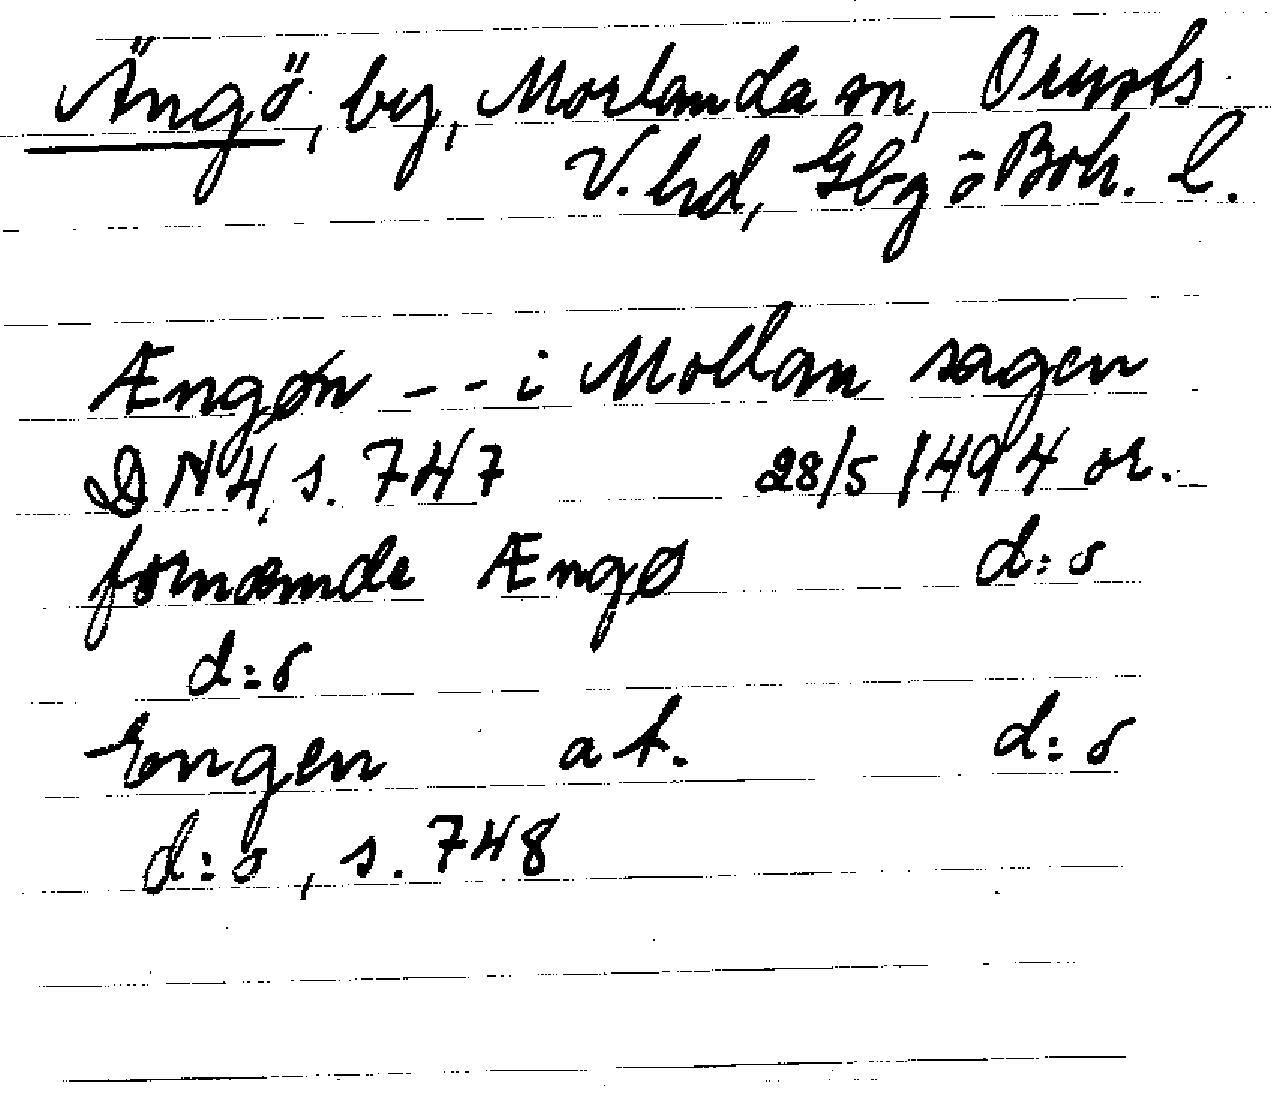 Ängö, by, Morlanda sn, Orusts
V. hd, Gbg o Boh. l.
Ængøn - - i Mollan sagen
DN 4, s. 747 28/5 1494 or.
fornæmde Ængø d:o
d:o
Engen at. d:o
d:o, s. 748